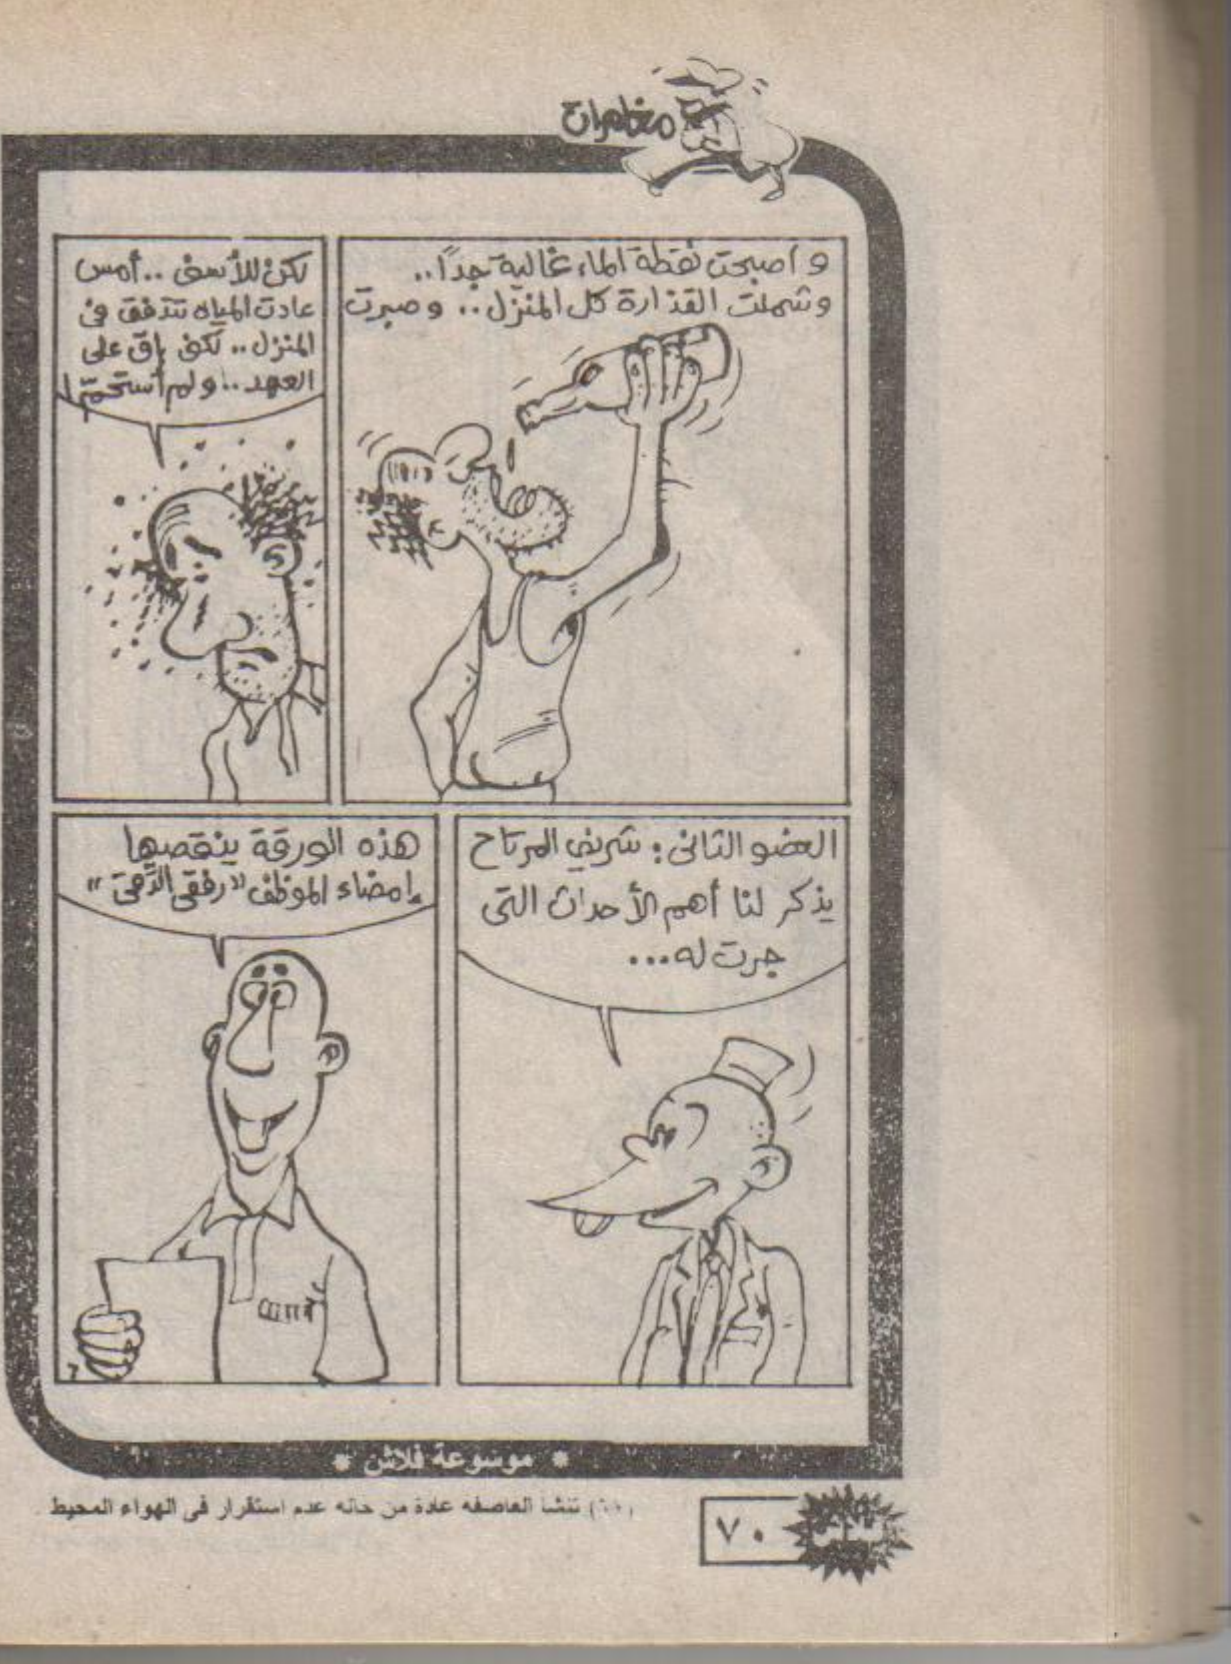 مغامرات
و أصبحت نقطة الماء غالية جداً..
وشملت القذارة كل المنزل.. و صبرت
لكن للأسف.. أمس
عادت المياه تتدفق فى
المنزل.. لكنى باق على
العهد.. و لم أستحمّ!
العضو الثانى: شريف المرتاح
يذكر لنا أهم الأحداث التى
جرت له...
هذه الورقة ينقصها
إمضاء الموظف "رفقى الدَّهنى"
* موسوعة فلاش *
تنشأ العاصفه عادة من حاله عدم استقرار فى الهواء المحيط
٧٠